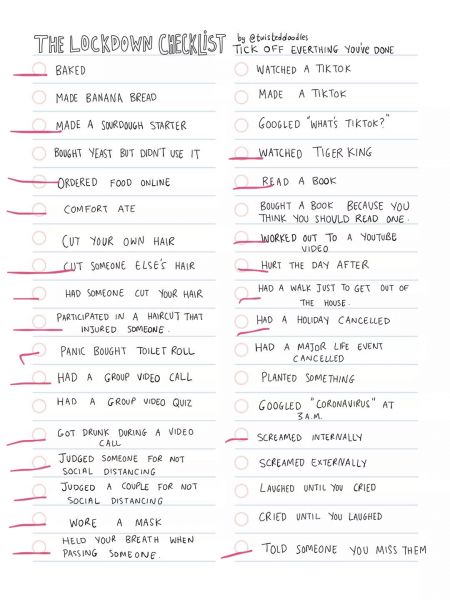 THE LOCKDOWN CHECKLIST by @twisteddoodles
TICK OFF EVERTHING YOU'VE DONE
BAKED
MADE BANANA BREAD
MADE A SOURDOUGH STARTER
BOUGHT YEAST BUT DIDN'T USE IT
ORDERED FOOD ONLINE
COMFORT ATE
CUT YOUR OWN HAIR
CUT SOMEONE ELSE'S HAIR
HAD SOMEONE CUT YOUR HAIR
PARTICIPATED IN A HAIRCUT THAT
INJURED SOMEONE.
PANIC BOUGHT TOILET ROLL
HAD A GROUP VIDEO CALL
HAD A GROUP VIDEO QUIZ
GOT DRUNK DURING A VIDEO
CALL
JUDGED SOMEONE FOR NOT
SOCIAL DISTANCING
JUDGED A COUPLE FOR NOT
SOCIAL DISTANCING
WORE A MASK
HELD YOUR BREATH WHEN
PASSING SOMEONE.
WATCHED A TIKTOK
MADE A TIKTOK
GOOGLED "WHAT'S TIKTOK?"
WATCHED TIGER KING
READ A BOOK
BOUGHT A BOOK BECAUSE YOU
THINK YOU SHOULD READ ONE.
WORKED OUT TO A YOUTUBE
VIDEO
HURT THE DAY AFTER
HAD A WALK JUST TO GET OUT OF
THE HOUSE.
HAD A HOLIDAY CANCELLED
HAD A MAJOR LIFE EVENT
CANCELLED
PLANTED SOMETHING
GOOGLED "CORONAVIRUS" AT
3 A.M.
SCREAMED INTERNALLY
SCREAMED EXTERNALLY
LAUGHED UNTIL YOU CRIED
CRIED UNTIL YOU LAUGHED
TOLD SOMEONE YOU MISS THEM